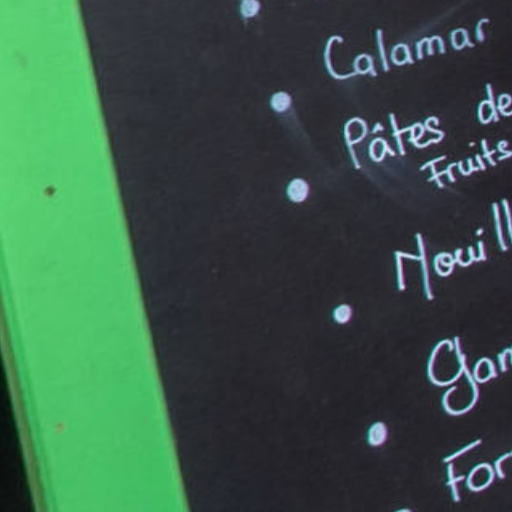 Calamar
Pâtes de
Fruits
Nouill
Gam
For